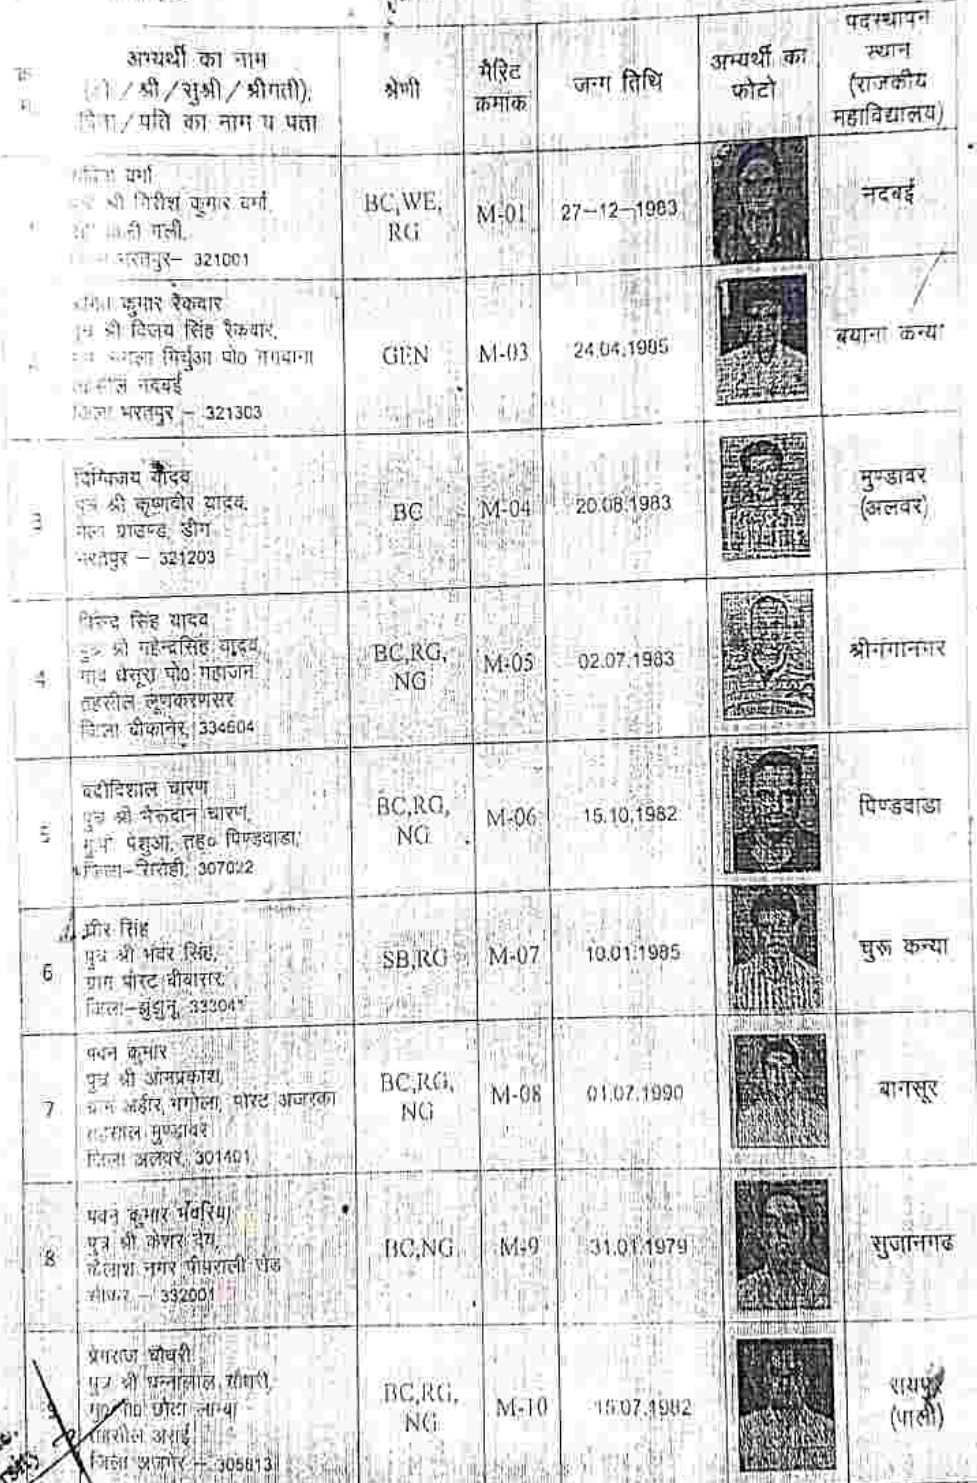 अभ्यर्थी का नाम
/ श्री / सुश्री / श्रीमती),
पिता / पति का नाम व पता
श्रेणी
मैरिट
क्रमांक
जन्म तिथि
अभ्यर्थी का
फोटो
पदस्थापन
स्थान
(राजकीय
महाविद्यालय)
वर्मा
श्री गिरीश कुमार वर्मा,
गली,
भरतपुर– 321001
BC,WE,
RG
M-01
27-12-1983
नदबई
कुमार रैकवार
पुत्र श्री विजय सिंह रैकवार,
पो०
तहसील नदबई
जिला भरतपुर – 321303
GEN
M-03
24.04.1985
बयाना कन्या
3
दिग्विजय यादव
पुत्र श्री कृष्णवीर यादव,
मेला ग्राउण्ड, डीग
भरतपुर – 321203
BC
M-04
20.08.1983
मुण्डावर
(अलवर)
4
सिंह यादव
पुत्र श्री महेन्द्रसिंह यादव,
गांव धीरेरा पो० महाजन
तहसील लूणकरणसर
जिला बीकानेर, 334604
BC,RG,
NG
M-05
02.07.1983
श्रीगंगानगर
5
बद्रीविशाल चारण
पुत्र श्री भैरूदान चारण,
पेशुआ, तह० पिण्डवाडा,
जिला–सिरोही, 307022
BC,RG,
NG
M-06
15.10.1982
पिण्डवाडा
6
सिंह
पुत्र श्री भंवर सिंह,
ग्राम पोस्ट
जिला–झुंझुनू, 333041
SB,RG
M-07
10.01.1985
चुरू कन्या
7
पवन कुमार
पुत्र श्री ओमप्रकाश,
ग्राम अहीर, पोस्ट अजरका
तहसील मुण्डावर
जिला अलवर, 301401
BC,RG,
NG
M-08
01.07.1990
बानसूर
8
पवन कुमार भंवरिया
पुत्र श्री केशर देव,
कैलाश नगर पीपराली रोड
सीकर – 332001
BC,NG
M-9
31.01.1979
सुजानगढ
9
प्रेमराज चौधरी
पुत्र श्री धन्नालाल चौधरी,
छोटा लाम्बा
तहसील अराई
जिला अजमेर – 305813
BC,RG,
NG
M-10
15.07.1982
रायपुर
(पाली)